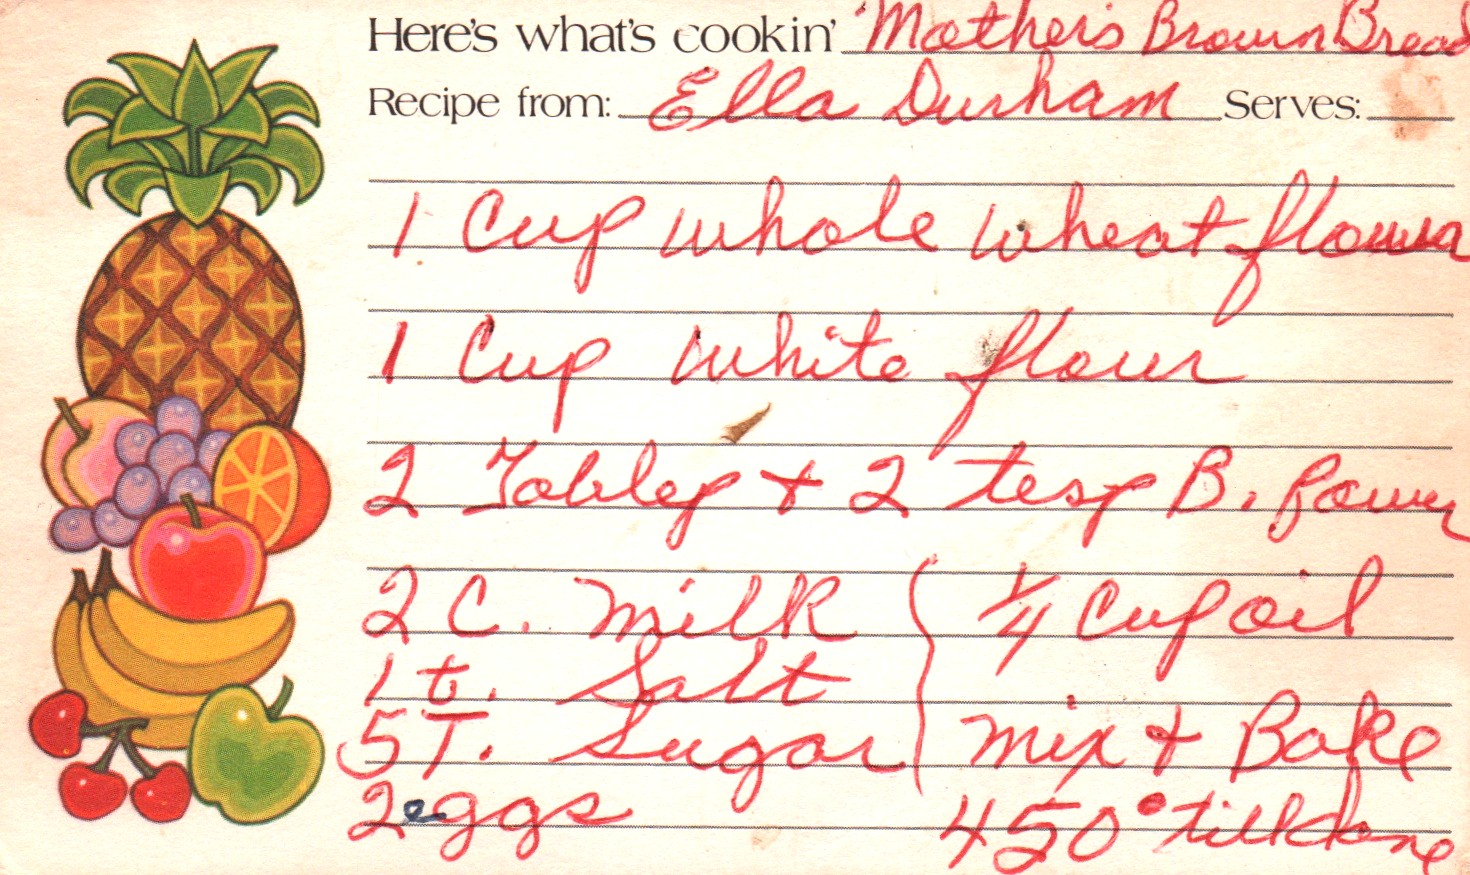 Here's what's cookin' Mother's Brown Bread
Recipe from: Ella Durham Serves:
1 Cup whole wheat flour
1 Cup white flour
2 Tablesp + 2 tesp B. Power
2 C. Milk
1 t. Salt
5 T. Sugar
2 eggs
1/4 Cup oil
Mix + Bake
450° till done